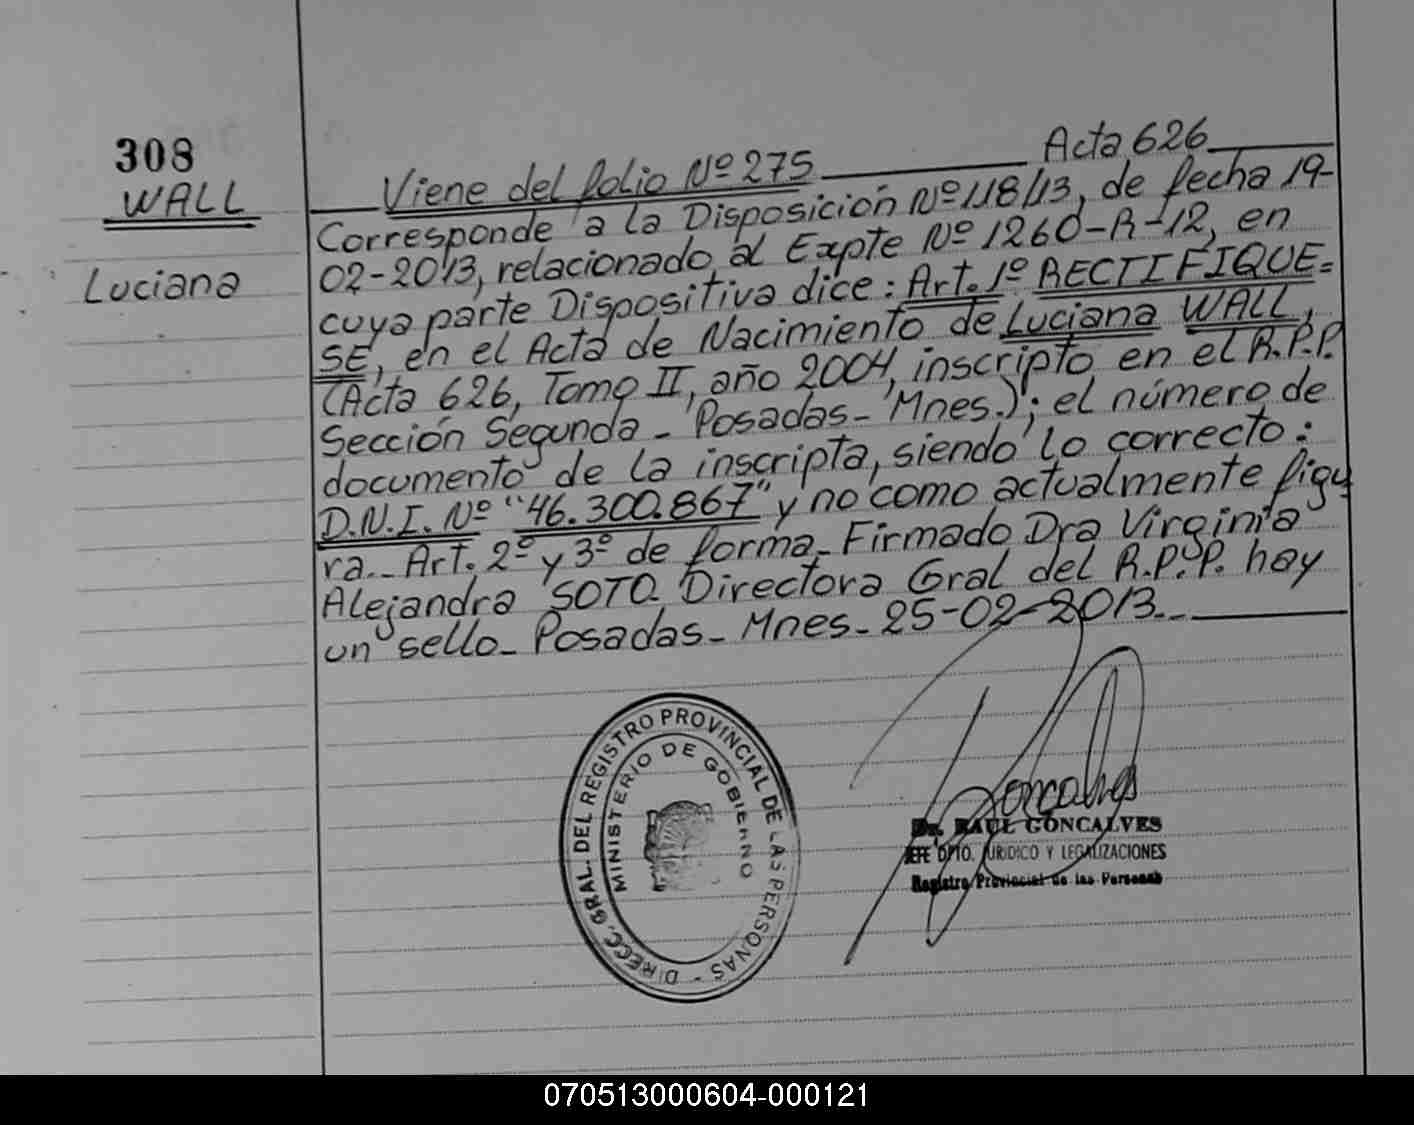 308
WALL
Luciana
Acta 626
Viene del folio Nº 275
Corresponde a la Disposición Nº 118/13, de fecha 19-
02-2013, relacionado al Expte Nº 1260-R-12, en
cuya parte Dispositiva dice: Art. 1º RECTIFIQUE=
SE, en el Acta de Nacimiento de Luciana WALL,
(Acta 626, Tomo II, año 2004, inscripto en el R.P.P.
Sección Segunda - Posadas - Mnes.); el número de
documento de la inscripta, siendo lo correcto:
D.N.I. Nº "46.300.867" y no como actualmente figu
ra.- Art. 2º y 3º de forma - Firmado Dra Virginia
Alejandra SOTO. Directora Gral del R.P.P. hay
un sello - Posadas - Mnes - 25-02-2013.-
DIRECC. GRAL. DEL REGISTRO PROVINCIAL DE LAS PERSONAS -
MINISTERIO DE GOBIERNO
Goncalves
Dr. RAUL GONCALVES
JEFE DPTO. JURIDICO Y LEGALIZACIONES
Registro Provincial de las Personas
070513000604-000121